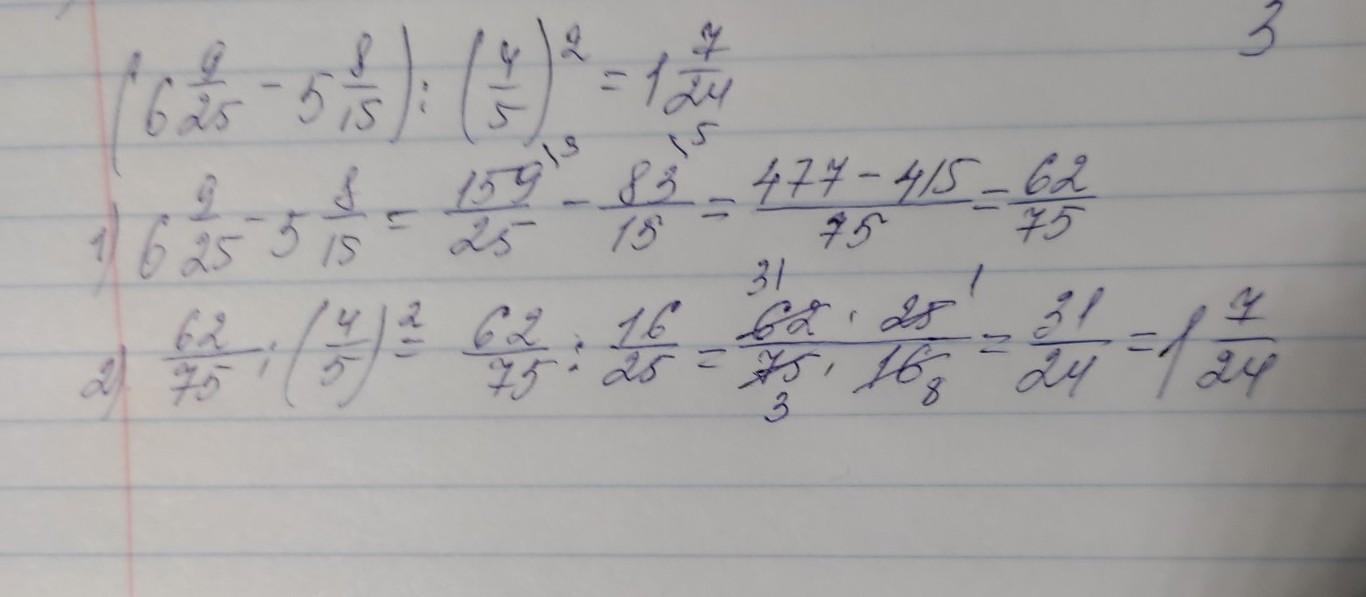 3
(6 9/25 - 5 8/15) : (4/5)² = 1 7/24
1) 6 9/25 - 5 8/15 = 159\3/25 - 83\5/15 = 477 - 415/75 = 62/75
2) 62/75 : (4/5)² = 62/75 : 16/25 = 31 62 · 25 1/3 75 · 16 8 = 31/24 = 1 7/24